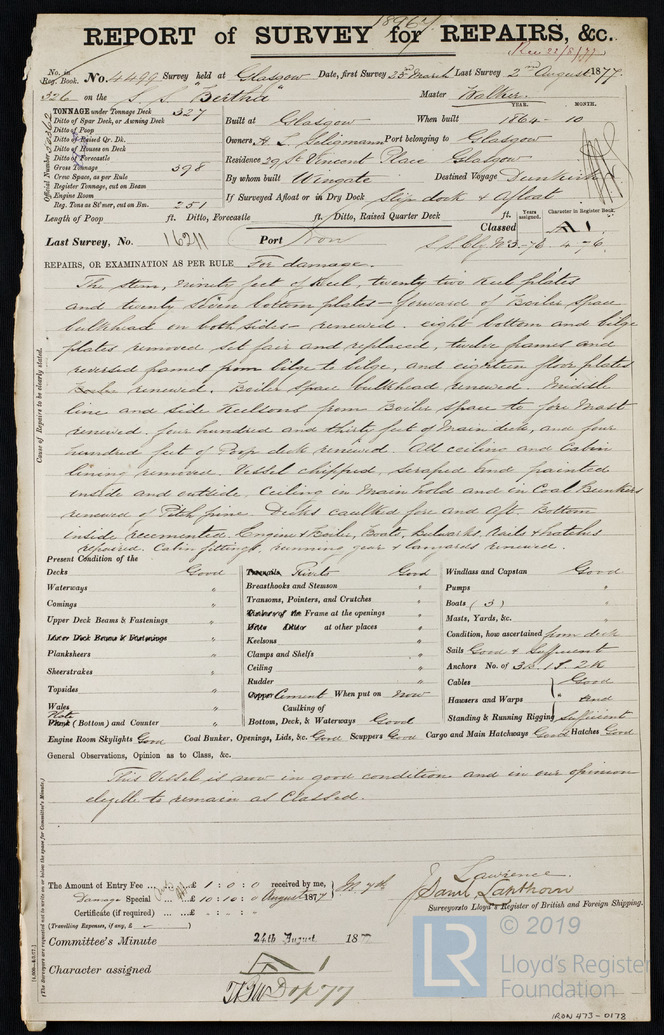 18967
REPORT of SURVEY for REPAIRS, &c.
Rec 22/8/77
No. in Reg. Book. No. 4499 Survey held at Glasgow Date, first Survey 23rd March Last Survey 2nd August 1877.
326 on the S S "Bertha" Master Walker.
TONNAGE under Tonnage Deck 327
YEAR. MONTH.
Ditto of Spar Deck, or Awning Deck
Built at Glasgow When built 1864 - 10
Ditto of Poop
Ditto of Raised Qr. Dk.
Owners H. L. Seligmann Port belonging to Glasgow
Ditto of Houses on Deck
Ditto of Forecastle
Residence 29 St Vincent Place Glasgow
Gross Tonnage 398
Crew Space, as per Rule
By whom built Wingate Destined Voyage Dunkirk
Register Tonnage, cut on Beam
Engine Room
If Surveyed Afloat or in Dry Dock Slip dock & Afloat
Reg. Tons as St'mer, cut on Bm. 251
Official Number
Length of Poop ft. Ditto, Forecastle ft. Ditto, Raised Quarter Deck ft.
Years assigned. Character in Register Book.
Classed A 1
Last Survey, No. 16211 Port Iron
REPAIRS, OR EXAMINATION AS PER RULE For damage.
The Stem, ninety feet of Keel, twenty two keel plates
and twenty seven bottom plates - forward of Boiler Space
bulkhead on both sides - renewed. eight bottom and bilge
plates removed set fair and replaced, twelve frames and
reversed frames from bilge to bilge, and eighteen floor plates
renewed. Boiler Space bulkhead renewed. Middle
line and side Keelsons from Boiler Space to fore Mast
renewed. four hundred and thirty feet of Main deck, and four
hundred feet of Poop deck renewed. All ceiling and Cabin
lining removed. Vessel chipped, scraped and painted
inside and outside. Ceiling in Main hold and in Coal Bunkers
renewed of Pitch pine. Decks caulked fore and aft. Bottom
inside recemented. Engine & Boiler, Boats, Bulwarks Rails & hatches
repaired. Cabin fittings, running gear & lanyards renewed.
Cause of Repairs to be clearly stated.
Present Condition of the
Decks Good
Waterways "
Comings "
Upper Deck Beams & Fastenings "
Lower Deck Beams & Fastenings
Planksheers "
Sheerstrakes "
Topsides "
Wales "
Plate (Bottom) and Counter "
Treenails Rivets Good
Breasthooks and Stemson "
Transoms, Pointers, and Crutches "
Timbers of the Frame at the openings "
Ditto Ditto at other places "
Keelsons "
Clamps and Shelfs "
Ceiling "
Rudder "
Copper Cement When put on Now
Caulking of
Bottom, Deck, & Waterways Good
Windlass and Capstan Good
Pumps "
Boats (3) "
Masts, Yards, &c. "
Condition, how ascertained from deck
Sails Good & Sufficient
Anchors No. of 3B. 1S. 2K
Cables Good
Hawsers and Warps " and
Standing & Running Rigging Sufficient
Engine Room Skylights Good Coal Bunker, Openings, Lids, &c. Good Scuppers Good Cargo and Main Hatchways Good Hatches Good
General Observations, Opinion as to Class, &c.
This Vessel is now in good condition and in our opinion
eligible to remain as Classed.
The Amount of Entry Fee ... £ 1 : 0 : 0 received by me,
Damage Special ... £ 10 : 10 : 0 August 1877
Certificate (if required) ... £ - : - : 0
(Travelling Expenses, if any, £ )
Lawrence
Saml Lapthorn
Surveyors to Lloyd's Register of British and Foreign Shipping.
Committee's Minute 24th August 187
Character assigned A 1
77
(The Surveyors are requested not to write on or below the space for Committee's Minute.)
© 2019
LR
Lloyd's Register
Foundation
IRON 473-0178